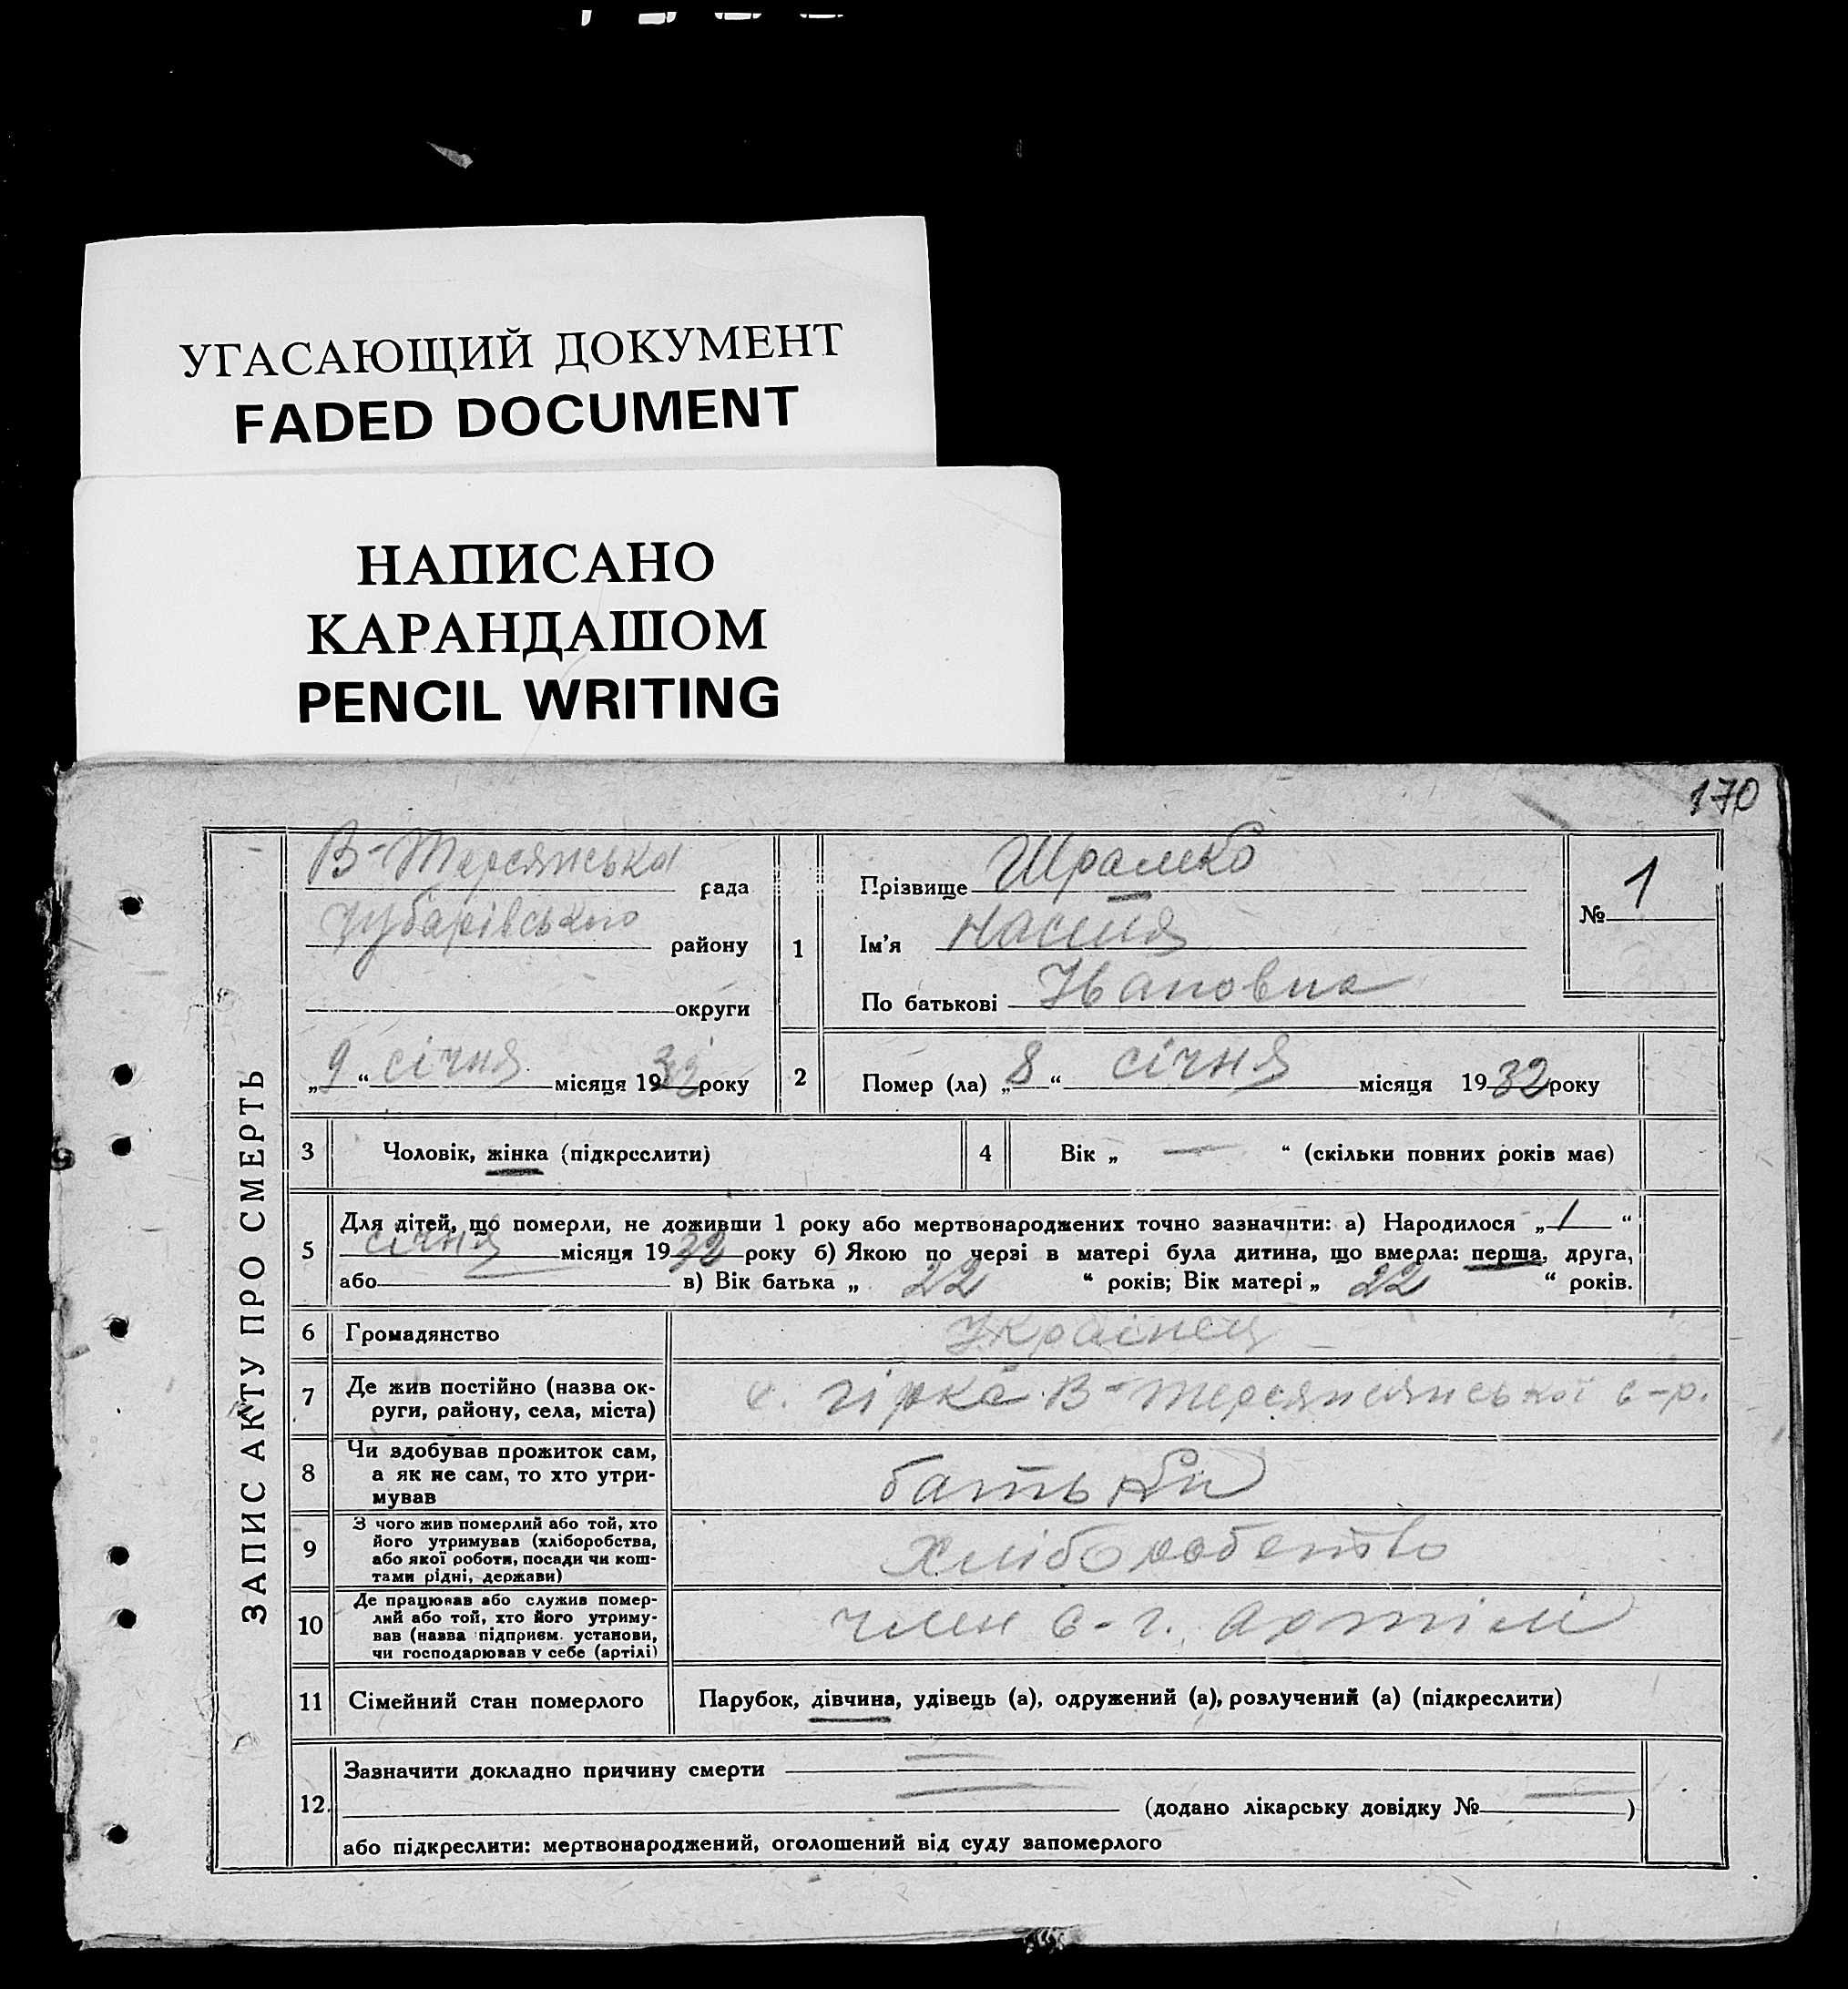 УГАСАЮЩИЙ ДОКУМЕНТ
FADED DOCUMENT
НАПИСАНО
КАРАНДАШОМ
PENCIL WRITING
170
ЗАПИС АКТУ ПРО СМЕРТЬ
В-Терсянська рада
Чубарівського району
округи
„9“ січня місяця 1932 року
1
Прізвище Шрамко
Ім'я Настя
По батькові Івановна
№ 1
2
Помер (ла) „8“ січня місяця 1932 року
3
Чоловік, жінка (підкреслити)
4
Вік „ — “ (скільки повних років має)
5
Для дітей, що померли, не доживши 1 року або мертвонароджених точно зазначити: а) Народилося „1“
січня місяця 1932 року б) Якою по черзі в матері була дитина, що вмерла: перша, друга,
або — в) Вік батька „22“ років; Вік матері „22“ років.
6
Громадянство
Украінец
7
Де жив постійно (назва ок-
руги, району, села, міста)
гірке В-Терсянської с-р.
8
Чи здобував прожиток сам,
а як не сам, то хто утри-
мував
батьки
9
З чого жив померлий або той, хто
його утримував (хліборобства,
або якої роботи, посади чи кош-
тами рідні, держави)
Хліборобство
10
Де працював або служив помер-
лий або той, хто його утриму-
вав (назва підприєм. установи,
чи господарював у себе (артілі)
член с-г. артілі
11
Сімейний стан померлого
Парубок, дівчина, удівець (а), одружений (а), розлучений (а) (підкреслити)
12.
Зазначити докладно причину смерти —
— (додано лікарську довідку № — )
або підкреслити: мертвонароджений, оголошений від суду запомерлого